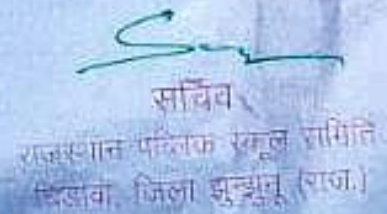 सचिव
राजस्थान पब्लिक स्कूल समिति
चिड़ावा, जिला झुन्झुनू (राज.)